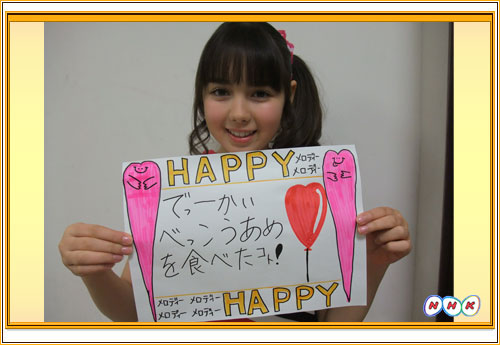 HAPPY メロディー
メロディー
でっーかい
べっこうあめ
を食べたコト!
メロディー メロディー
メロディー メロディー HAPPY
NHK